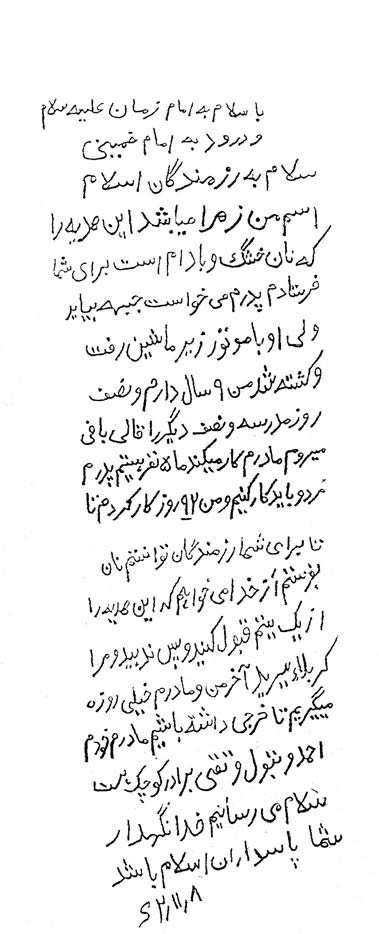 با سلام به امام زمان علیه سلام
و درود به امام خمینی
سلام به رزمندگان اسلام
اسم من زهرا میباشد این هدیه را
که نان خشگ و بادام است برای شما
فرستادم پدرم می خواست جبهه بیاید
ولی او با موتور زیر ماشین رفت
و کشته شد من ۹ سال دارم و نصف
روز مدرسه و نصف دیگر را قالی بافی
میروم مادرم کار میکند ما ۵ نفر هستیم پدرم
مرد و باید کار کنیم و من ۹۲ روز کار کردم تا
تا برای شما رزمندگان توانستم نان
بفرستم از خدا می خواهم که این هدیه را
از یک یتیم قبول کنید و پس ندهید و مرا
کربلا ببرید آخر من و مادرم خیلی روزه
میگیریم تا خرجی داشته باشیم مادرم خودم
احمد و بتول و تقی برادر کوچک هست
سلام می رسانیم خدا نگهدار
شما پاسداران اسلام باشد
۶۲٫۱۱٫۸